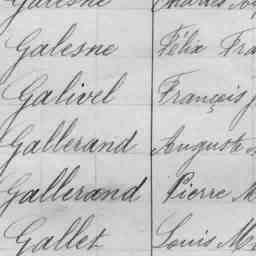 Galesne Charles
Galesne Félix
Galivel François
Gallerand Auguste
Gallerand Pierre M
Gallet Louis M